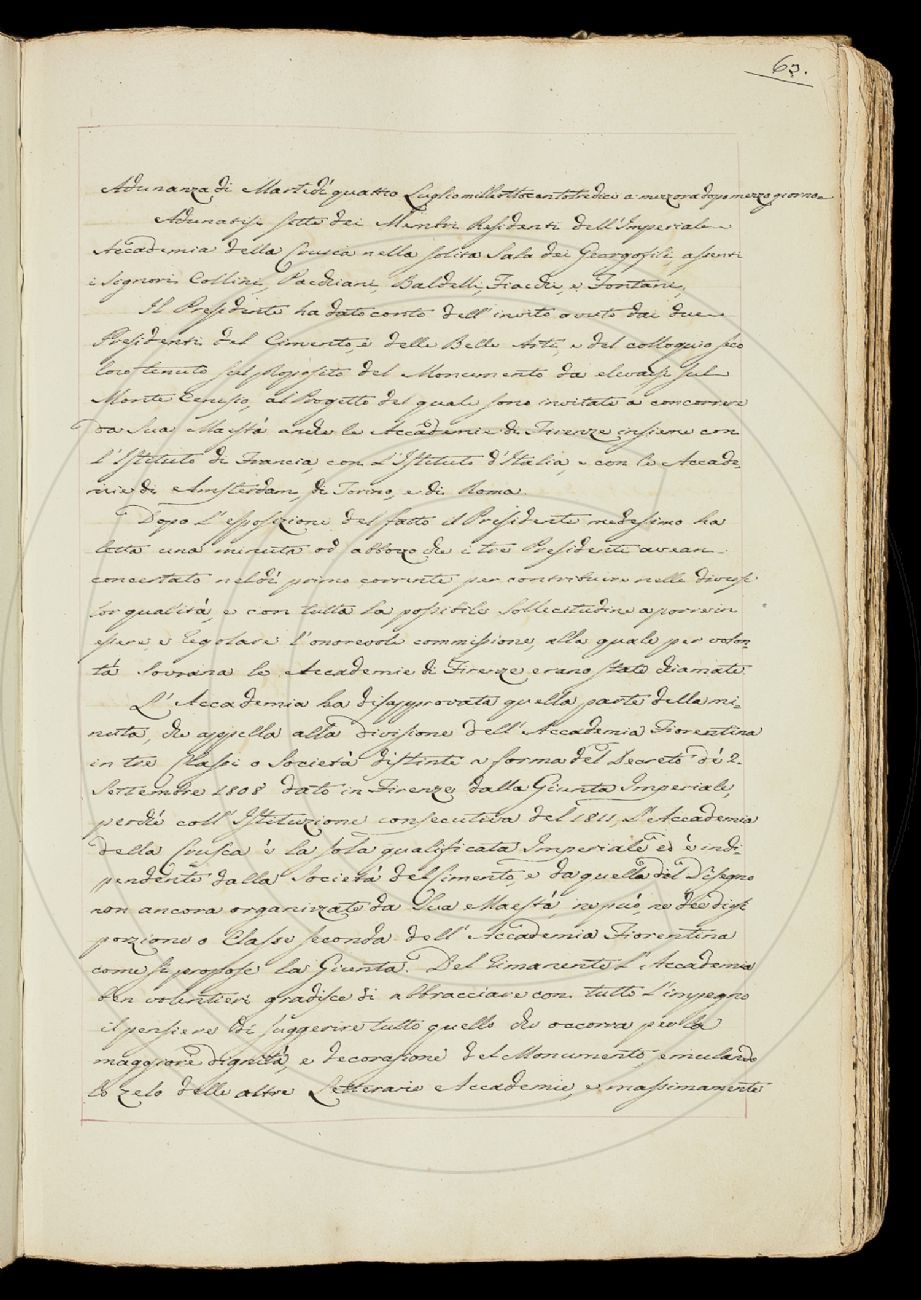 63.
Adunanza di Martedì quattro Luglio mille ottocento tredici a mezzora dopo mezzo giorno
Adunatisi sette dei Membri Residenti dell'Imperiale
Accademia della Crusca nella solita Sala dei Georgofili assenti
i Signori Collini, Pacchiani, Baldelli, Fiacchi, e Fontani,
Il Presidente ha dato conto dell'invito avuto dai due
Presidenti del Cimento, e delle Belle Arti, e del colloquio seco
loro tenuto sul proposito del Monumento da elevarsi sul
Monte Cenisio, al Progetto del quale sono invitate a concorrere
da Sua Maestà anche le Accademie di Firenze insieme con
l'Istituto di Francia, con l'Istituto d'Italia, e con le Accade
mie di Amsterdam, di Torino, e di Roma.
Dopo l'esposizione del fatto il Presidente medesimo ha
letta una minuta od abbozzo che i tre Presidenti avean
concertato nel dì primo corrente per contribuire nelle diverse
lor qualità, e con tutta la possibile sollecitudine a porre in
essere, e regolare l'onorevole commissione, alla quale per volon-
tà Sovrana le Accademie di Firenze erano state chiamate.
L'Accademia ha disapprovata quella parte della mi-
nuta, che appella alla divisione dell'Accademia Fiorentina
in tre Classi o Società distinte a forma del Decreto de' 2.
Settembre 1808 dato in Firenze dalla Giunta Imperiale,
perchè coll'Istituzione consecutiva del 1811, l'Accademia
della Crusca è la sola qualificata Imperiale ed è indi-
pendente dalla Società del Cimento, e da quella del Disegno
non ancora organizzate da Sua Maestà, nè più, nè
porzione o Classe seconda dell'Accademia Fiorentina
come si propose la Giunta. Del rimanente l'Accademia
ben volentieri gradisce di abbracciare con tutto l'impegno
il pensiere di suggerire tutto quello che occorra per la
maggiore dignità, e decorazione del Monumento, emulando
lo zelo delle altre Letterarie Accademie, e massimamente